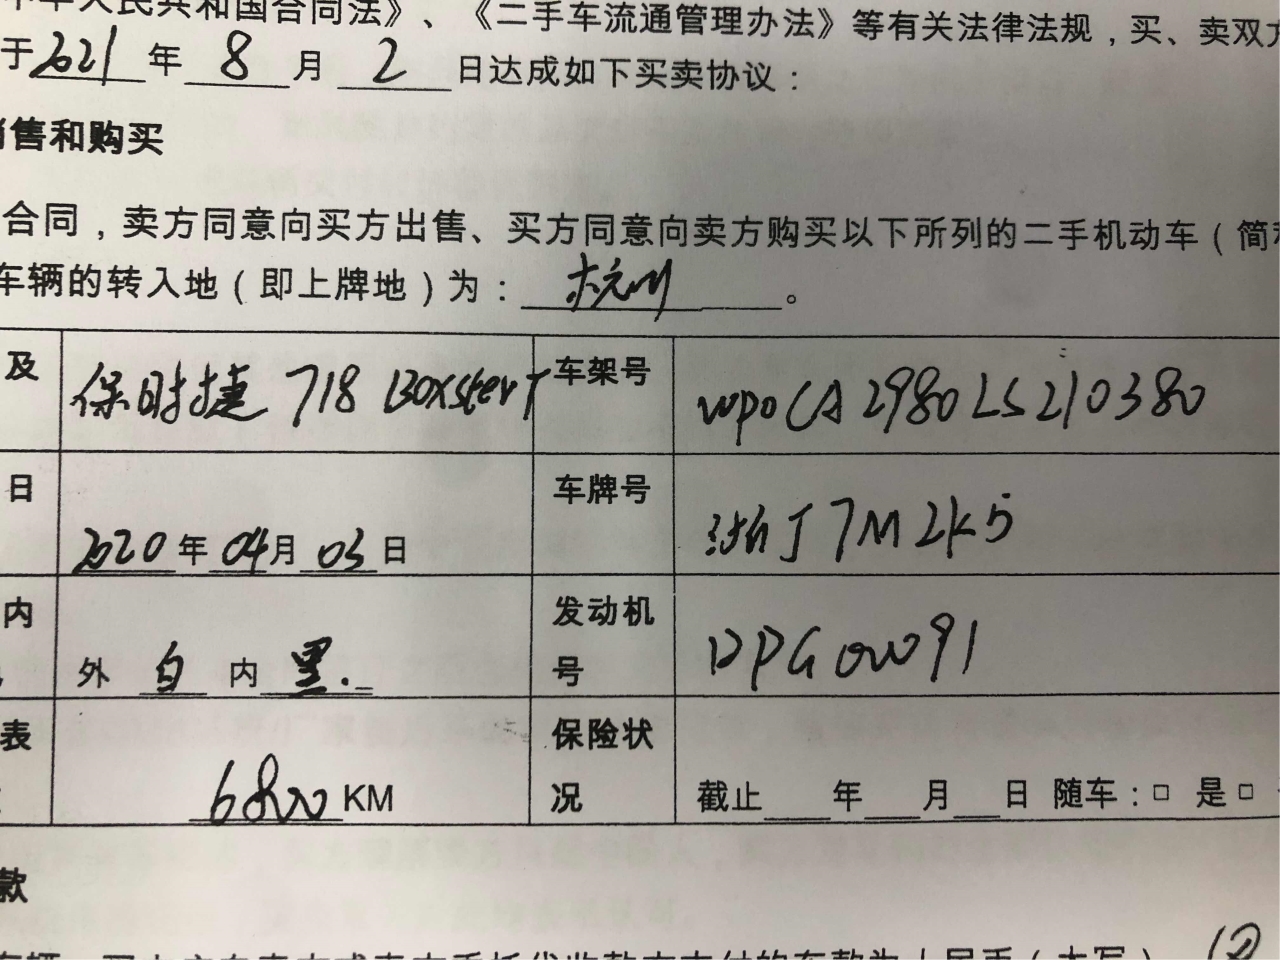 中华人民共和国合同法》、《二手车流通管理办法》等有关法律法规，买、卖双方
于2021年8月2日达成如下买卖协议：
销售和购买
合同，卖方同意向买方出售、买方同意向卖方购买以下所列的二手机动车（简称
车辆的转入地（即上牌地）为：杭州。
及 保时捷 718 Boxster T 车架号 WP0CA2980LS210380
日 2020年04月03日 车牌号 浙J7M2K5
内 外 白 内 黑. 发动机号 DPG000091
表 6800KM 保险状况 截止 年 月 日 随车：□ 是□
款